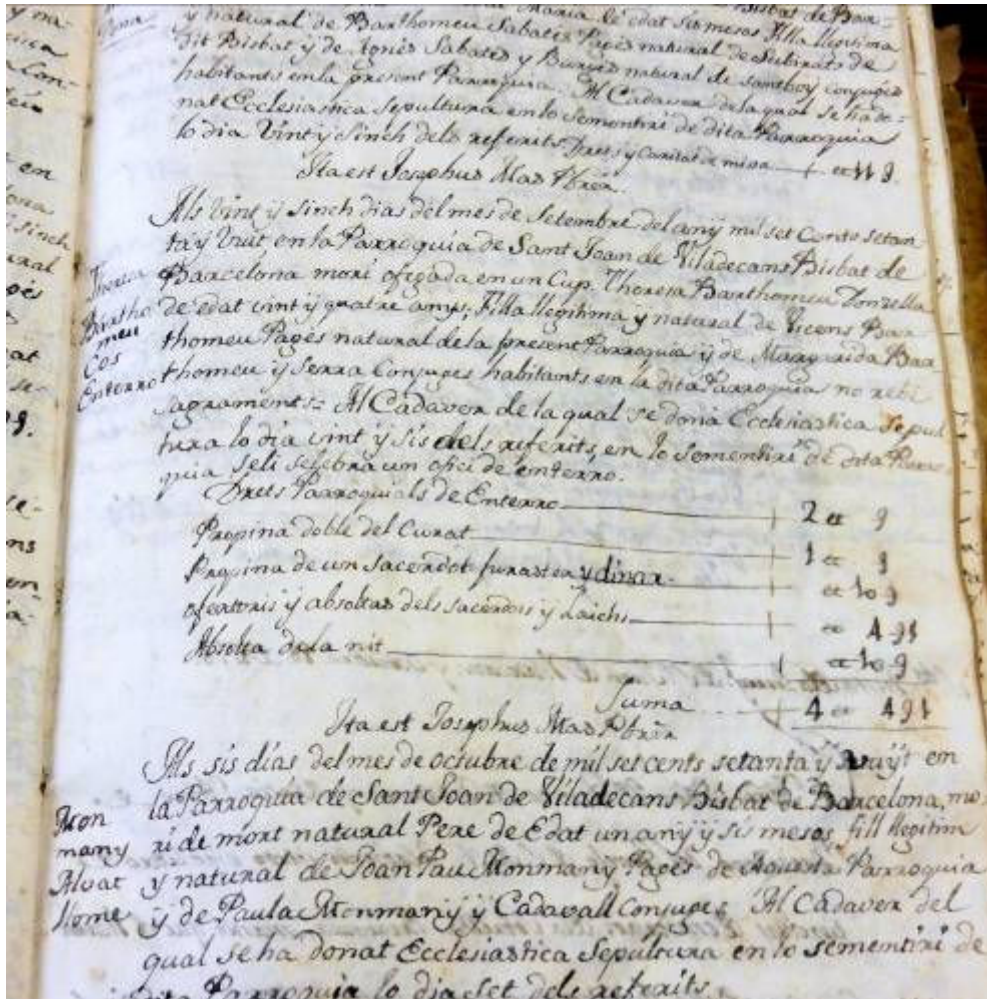 Maria de edat sis mesos filla llegitima
y natural de Barthomeu Sabater Pagès natural de Subirats de
dit Bisbat y de Agnès Sabater y natural de Santboy conjuges
habitants en la present Parroquia. Al Cadaver de la qual se ha do=
nat Ecclesiastica Sepultura en lo Sementiri de dita Parroquia
lo dia Vint y Sinch dels referits Drets y Caritat de missa
Ita est Josephus Mas Pbrer.
Als Vint ÿ Sinch dias del mes de Setembre del anÿ mil set Cents setan
ta ÿ Vuit en la Parroquia de Sant Joan de Viladecans Bisbat de
Barcelona morí ofegada en un Cup, Theresa Barthomeu Donzella
de edat vint ÿ quatre anys, filla llegitima y natural de Vicens Bar
thomeu Pagès natural de la present Parroquia ÿ de Margarida Bar
thomeu ÿ Serra Conjuges habitants en la dita Parroquia no rebé
sagraments= Al Cadaver de la qual se doná Ecclesiastica Sepul
tura lo dia vint ÿ sis dels referits, en lo Sementiri de dita Parro
quia Seli selebra un ofici de enterro.
Theresa
Bartho
meu
Cos
Enterro
Drets Parroquials de Enterro 2 9
Propina doble del Curat 1 9
Propina de un Sacerdot furaster y dinar 10 9
ofertoris ÿ absoltas dels sacerdots ÿ Laichs 4 91
Absolta de la nit 10 9
Suma 4 491
Ita est Josephus Mas Pbrer
Als sis días del mes de octubre de mil set cents setanta ÿ vuÿt en
la Parroquia de Sant Joan de Viladecans Bisbat de Barcelona, mo
rí de mort natural Pere de Edat un anÿ ÿ sis mesos, fill llegitim
y natural de Joan Pau Monmanÿ Pagès de Aquesta Parroquia
ÿ de Paula Monmanÿ ÿ Cadavall Conjuges, Al Cadaver del
qual se ha donat Ecclesiastica Sepultura en lo sementiri de
dita Parroquia lo dia set dels referits.
Mon
many
Albat
Home